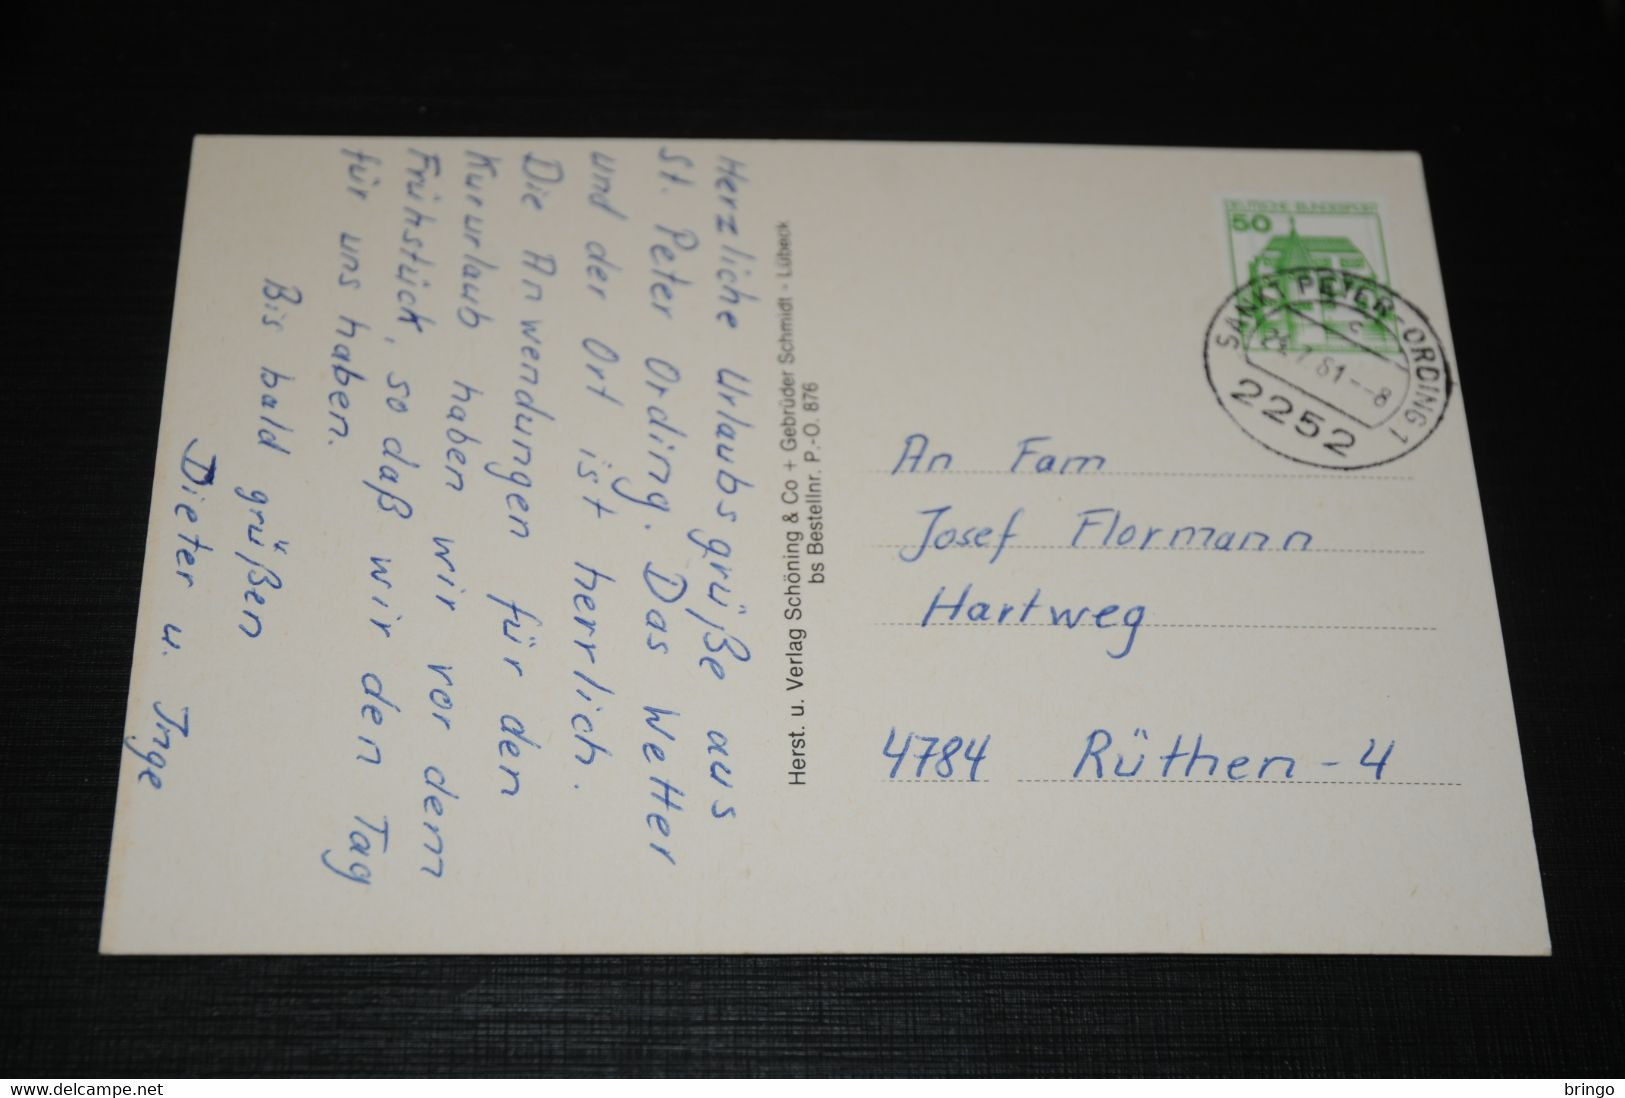 Herzliche Urlaubsgrüße aus
St. Peter Ording. Das Wetter
und der Ort ist herrlich.
Die Anwendungen für den
Kururlaub haben wir vor dem
Frühstück, so daß wir den Tag
für uns haben.
Bis bald grüßen
Dieter u. Inge
Herst. u. Verlag Schöning & Co + Gebrüder Schmidt - Lübeck
bs Bestellnr. P.-O. 876
DEUTSCHE BUNDESPOST
50
SANKT PETER-ORDING 1
2252
An Fam
Josef Flormann
Hartweg
4784 Rüthen-4
https://www.delcampe.net
bringo